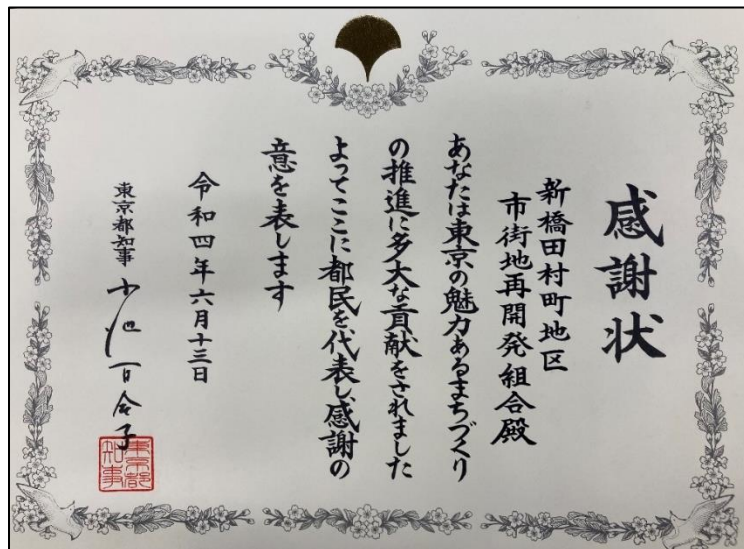 感謝状
新橋田村町地区
市街地再開発組合殿
あなたは東京の魅力あるまちづくり
の推進に多大な貢献をされました
よってここに都民を代表し感謝の
意を表します
令和四年六月十三日
東京都知事 小池百合子
東京都知事